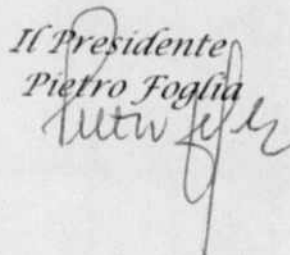 Il Presidente
Pietro Foglia